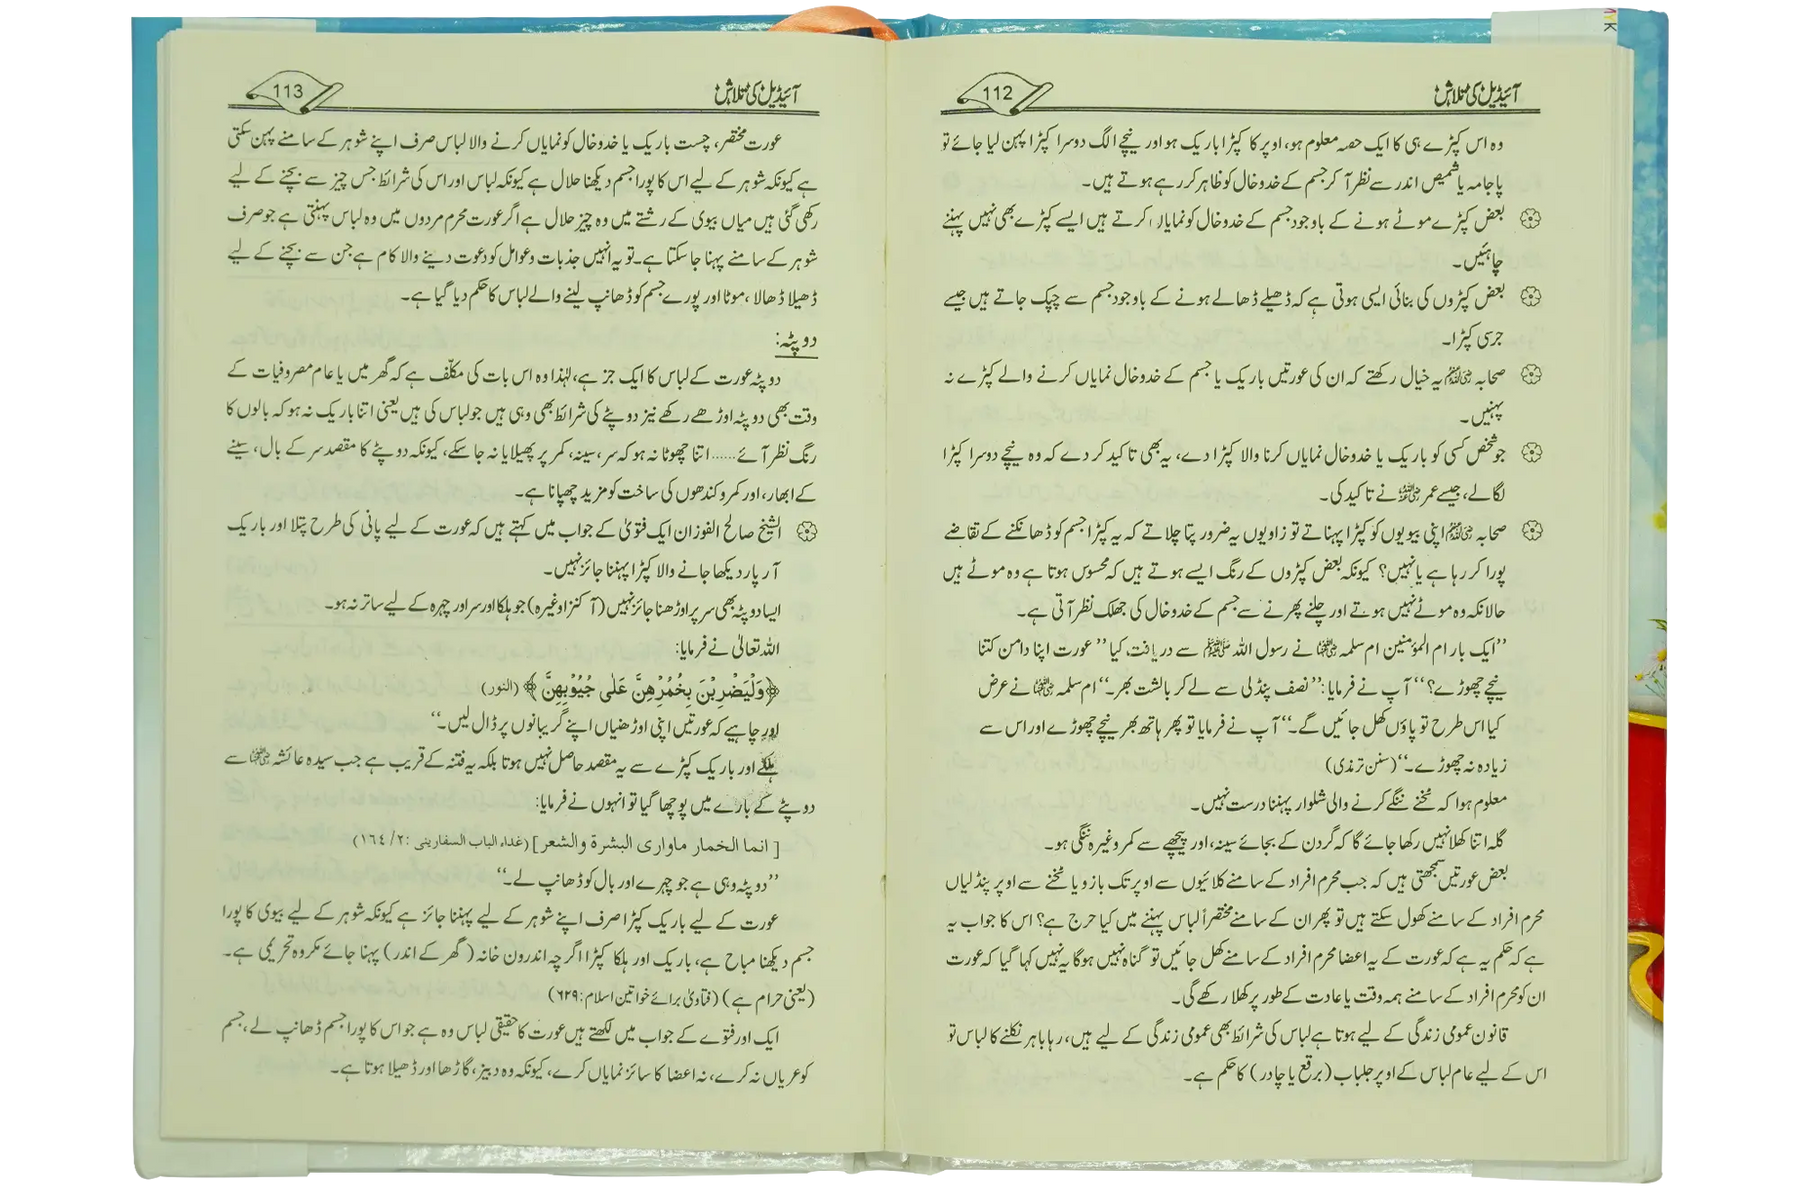 آئیڈیل کی تلاش
112
وہ اس کپڑے ہی کا ایک حصہ معلوم ہو، اوپر کا کپڑا باریک ہو اور نیچے الگ دوسرا کپڑا پہن لیا جائے تو
پاجامہ یا شمیص اندر سے نظر آ کر جسم کے خدوخال کو ظاہر کر رہے ہوتے ہیں۔
بعض کپڑے موٹے ہونے کے باوجود جسم کے خدوخال کو نمایاں کرتے ہیں ایسے کپڑے بھی نہیں پہننے
چاہئیں۔
بعض کپڑوں کی بنائی ایسی ہوتی ہے کہ ڈھیلے ڈھالے ہونے کے باوجود جسم سے چپک جاتے ہیں جیسے
جرسی کپڑا۔
صحابہ رضی اللہ عنہم یہ خیال رکھتے کہ ان کی عورتیں باریک یا جسم کے خدوخال نمایاں کرنے والے کپڑے نہ
پہنیں۔
جو شخص کسی کو باریک یا خدوخال نمایاں کرنا والا کپڑا دے، یہ بھی تاکید کر دے کہ وہ نیچے دوسرا کپڑا
لگا لے، جیسے عمر رضی اللہ عنہ نے تاکید کی۔
صحابہ رضی اللہ عنہم اپنی بیویوں کو کپڑا پہناتے تو زاویوں یہ ضرور پتا چلاتے کہ یہ کپڑا جسم کو ڈھانکنے کے تقاضے
پورا کر رہا ہے یا نہیں؟ کیونکہ بعض کپڑوں کے رنگ ایسے ہوتے ہیں کہ محسوس ہوتا ہے وہ موٹے ہیں
حالانکہ وہ موٹے نہیں ہوتے اور چلنے پھرنے سے جسم کے خدوخال کی جھلک نظر آتی ہے۔
’’ایک بار ام المؤمنین ام سلمہ رضی اللہ عنہا نے رسول اللہ ﷺ سے دریافت کیا ’’عورت اپنا دامن کتنا
نیچے چھوڑے؟‘‘ آپ نے فرمایا: ’’نصف پنڈلی سے لے کر بالشت بھر۔‘‘ ام سلمہ رضی اللہ عنہا نے عرض
کیا اس طرح تو پاؤں کھل جائیں گے۔‘‘ آپ نے فرمایا تو پھر ہاتھ بھر نیچے چھوڑے اور اس سے
زیادہ نہ چھوڑے۔‘‘ (سنن ترمذی)
معلوم ہوا کہ ٹخنے ننگے کرنے والی شلوار پہننا درست نہیں۔
گلہ اتنا کھلا نہیں رکھا جائے گا کہ گردن کے بجائے سینہ، اور پیچھے سے کمر وغیرہ ننگی ہو۔
بعض عورتیں سمجھتی ہیں کہ جب محرم افراد کے سامنے کلائیوں سے اوپر تک بازو یا ٹخنے سے اوپر پنڈلیاں
محرم افراد کے سامنے کھول سکتے ہیں تو پھر ان کے سامنے مختصراً لباس پہننے میں کیا حرج ہے؟ اس کا جواب یہ
ہے کہ حکم یہ ہے کہ عورت کے یہ اعضا محرم افراد کے سامنے کھل جائیں تو گناہ نہیں ہوگا یہ نہیں کہا گیا کہ عورت
ان کو محرم افراد کے سامنے ہمہ وقت یا عادت کے طور پر کھلا رکھے گی۔
قانون عمومی زندگی کے لیے ہوتا ہے لباس کی شرائط بھی عمومی زندگی کے لیے ہیں، رہا باہر نکلنے کا لباس تو
اس کے لیے عام لباس کے اوپر جلباب (برقع یا چادر) کا حکم ہے۔
آئیڈیل کی تلاش
113
عورت مختصر، چست باریک یا خدوخال کو نمایاں کرنے والا لباس صرف اپنے شوہر کے سامنے پہن سکتی
ہے کیونکہ شوہر کے لیے اس کا پورا جسم دیکھنا حلال ہے کیونکہ لباس اور اس کی شرائط جس چیز سے بچنے کے لیے
رکھی گئی ہیں میاں بیوی کے رشتے میں وہ چیز حلال ہے اگر عورت محرم مردوں میں وہ لباس پہنتی ہے جو صرف
شوہر کے سامنے پہنا جا سکتا ہے۔ تو یہ انہیں جذبات و عوامل کو دعوت دینے والا کام ہے جن سے بچنے کے لیے
ڈھیلا ڈھالا، موٹا اور پورے جسم کو ڈھانپ لینے والے لباس کا حکم دیا گیا ہے۔
دوپٹہ:
دوپٹہ عورت کے لباس کا ایک جز ہے، لہٰذا وہ اس بات کی مکلّف ہے کہ گھر میں یا عام مصروفیات کے
وقت بھی دوپٹہ اوڑھے رکھے نیز دوپٹے کی شرائط بھی وہی ہیں جو لباس کی ہیں یعنی اتنا باریک نہ ہو کہ بالوں کا
رنگ نظر آئے...... اتنا چھوٹا نہ ہو کہ سر، سینہ، کمر پر پھیلایا نہ جا سکے، کیونکہ دوپٹے کا مقصد سر کے بال، سینے
کے ابھار، اور کمر و کندھوں کی ساخت کو مزید چھپانا ہے۔
الشیخ صالح الفوزان ایک فتویٰ کے جواب میں کہتے ہیں کہ عورت کے لیے پانی کی طرح پتلا اور باریک
آر پار دیکھا جانے والا کپڑا پہننا جائز نہیں۔
ایسا دوپٹہ بھی سر پر اوڑھنا جائز نہیں (آکنز اوغیرہ) جو ہلکا اور سر اور چہرہ کے لیے ساتر نہ ہو۔
اللہ تعالیٰ نے فرمایا:
﴿وَلْيَضْرِبْنَ بِخُمُرِهِنَّ عَلٰى جُيُوْبِهِنَّ﴾ (النور)
اور چاہیے کہ عورتیں اپنی اوڑھنیاں اپنے گریبانوں پر ڈال لیں۔‘‘
ہلکے اور باریک کپڑے سے یہ مقصد حاصل نہیں ہوتا بلکہ یہ فتنہ کے قریب ہے جب سیدہ عائشہ رضی اللہ عنہا سے
دوپٹے کے بارے میں پوچھا گیا تو انہوں نے فرمایا:
[انما الخمار ماوارى البشرة والشعر] (غذاء الباب السفارينى: ٢/ ١٦٤)
’’دوپٹہ وہی ہے جو چہرے اور بال کو ڈھانپ لے۔‘‘
عورت کے لیے باریک کپڑا صرف اپنے شوہر کے لیے پہننا جائز ہے کیونکہ شوہر کے لیے بیوی کا پورا
جسم دیکھنا مباح ہے، باریک اور ہلکا کپڑا اگرچہ اندرون خانہ (گھر کے اندر) پہنا جائے مکروہ تحریمی ہے۔
(یعنی حرام ہے) (فتاویٰ برائے خواتین اسلام: ۶۲۹)
ایک اور فتوے کے جواب میں لکھتے ہیں عورت کا حقیقی لباس وہ ہے جو اس کا پورا جسم ڈھانپ لے، جسم
کو عریاں نہ کرے، نہ اعضا کا سائز نمایاں کرے، کیونکہ وہ دبیز، گاڑھا اور ڈھیلا ہوتا ہے۔